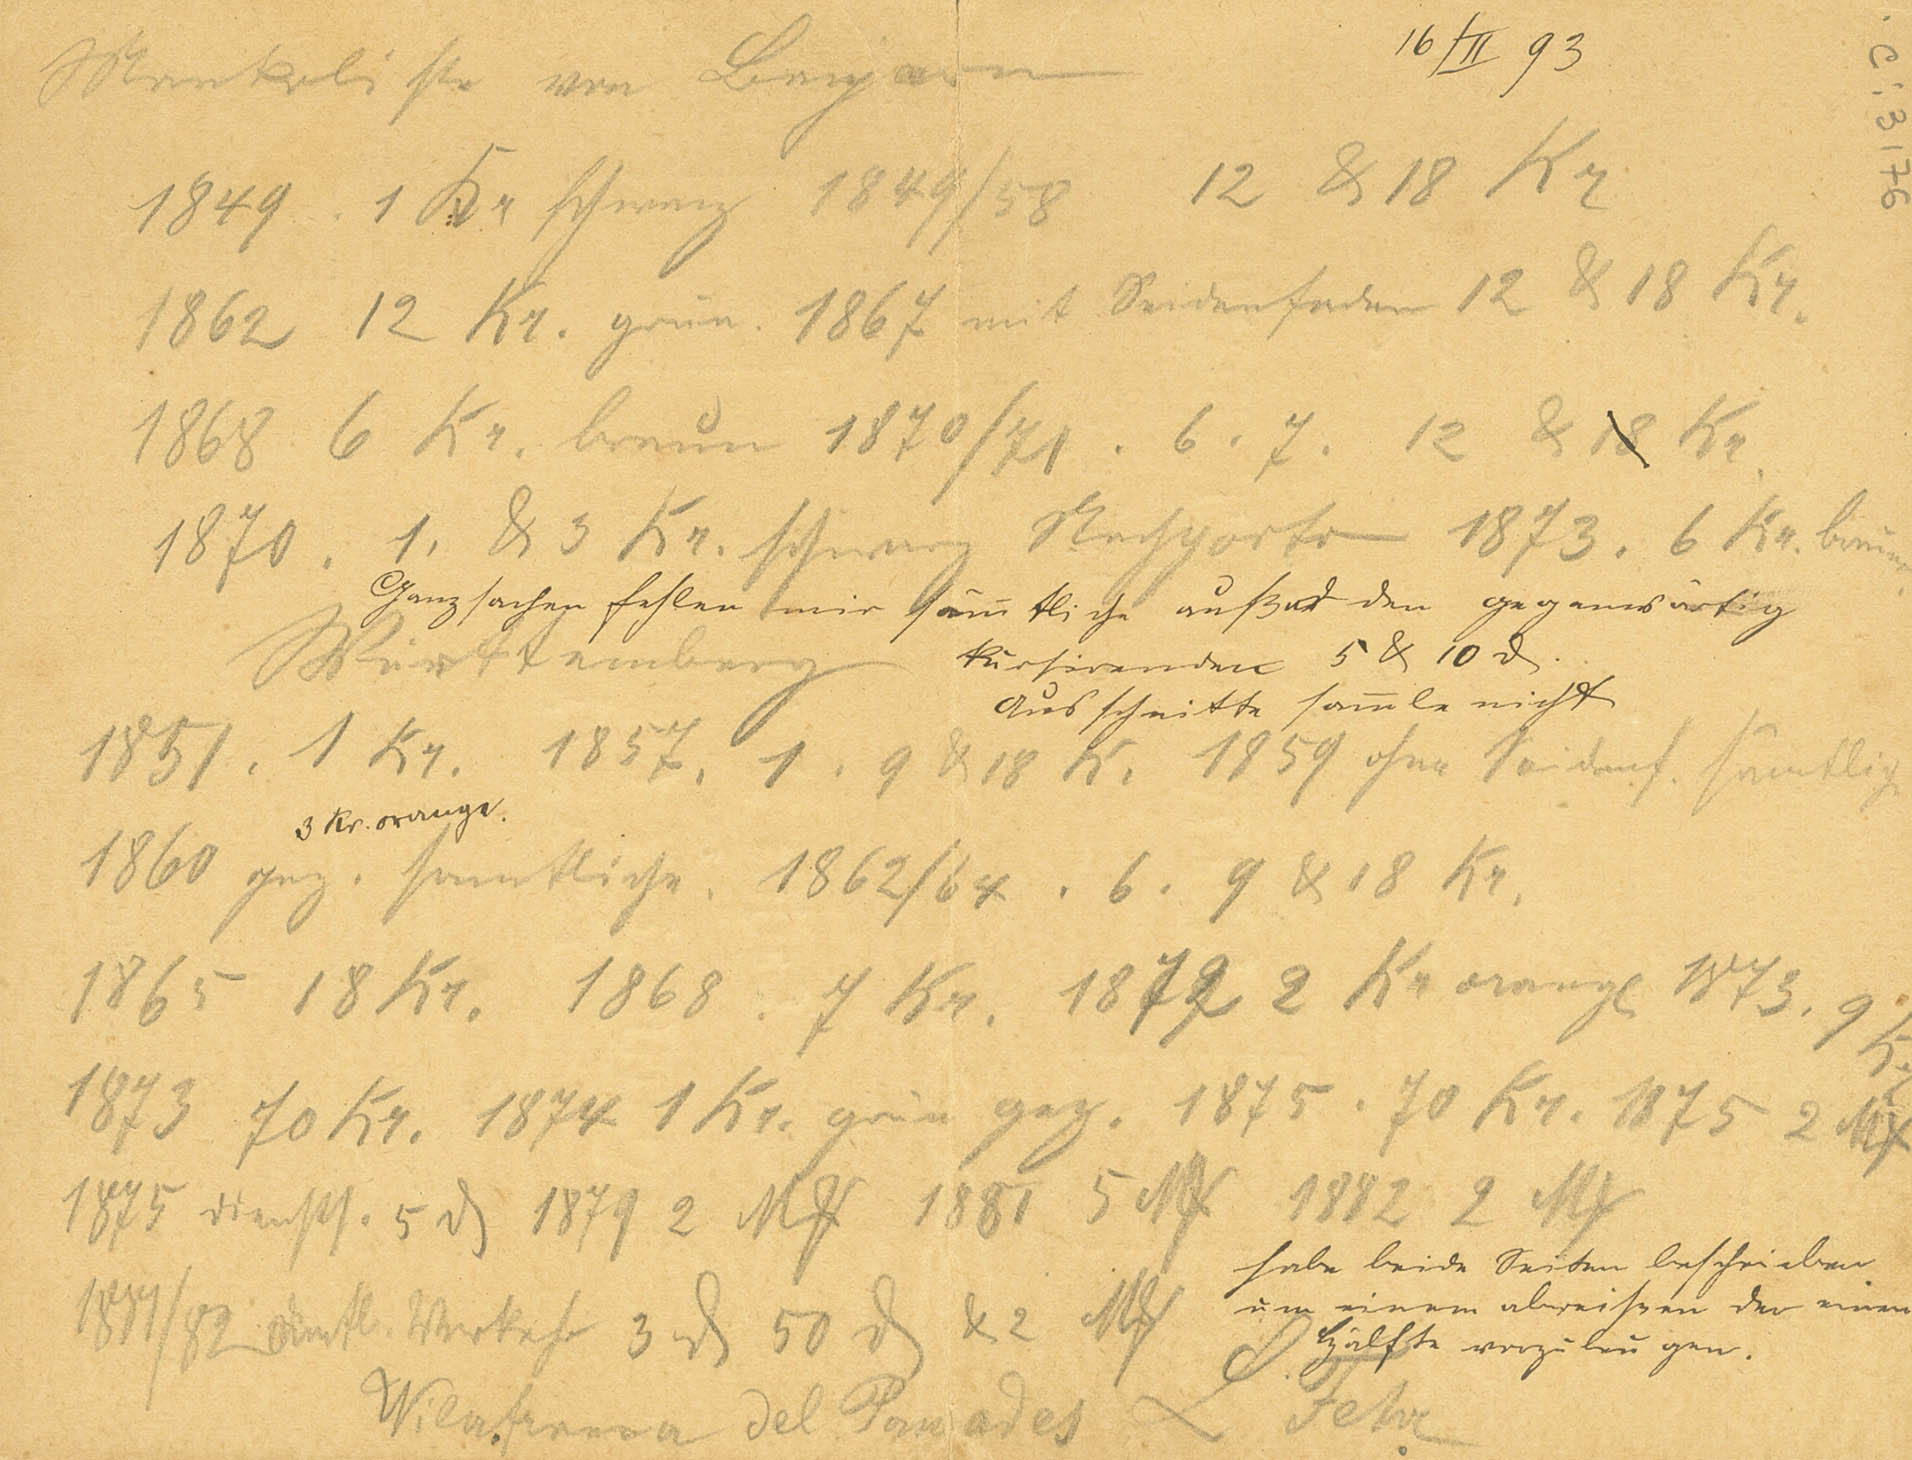 16/II 93
C: 3176
Mankoliste von Bayern
1849 . 1 Kr schwarz 1849/58 12 & 18 Kr
1862 12 Kr. grün. 1867 mit Seidenfaden 12 & 18 Kr.
1868 6 Kr. braun 1870/71 . 6 . 7 . 12 & 18 Kr.
1870 . 1. & 3 Kr. schwarz Nachporto 1873. 6 Kr. braun
Ganzsachen fehlen mir sämtliche außer den gegenwärtig
kursirenden 5 & 10 ₰.
Ausschnitte samle nicht
Württemberg
1851 . 1 Kr. 1857. 1 . 9 & 18 K. 1859 ohne Seidenf. sämtlich
3 Kr. orange.
1860 gez. samtliche. 1862/64 . 6 . 9 & 18 Kr.
1865 18 Kr. 1868 . 7 Kr. 1872 2 Kr orange 1873. 9 Kr
1873 70 Kr. 1874 1 Kr. grün gez. 1875 . 70 Kr. 1875 2 Mk
1875 Dienstl. 5 ₰ 1879 2 Mk 1881 5 Mk 1882 2 Mk
1881/82 amtl. Verkehr 3 ₰ 50 ₰ & 2 Mk
habe beide Seiten beschrieben
um einem abreißen der einen
Hälfte vorzubeugen.
Vilafranca del Panades L Fehr